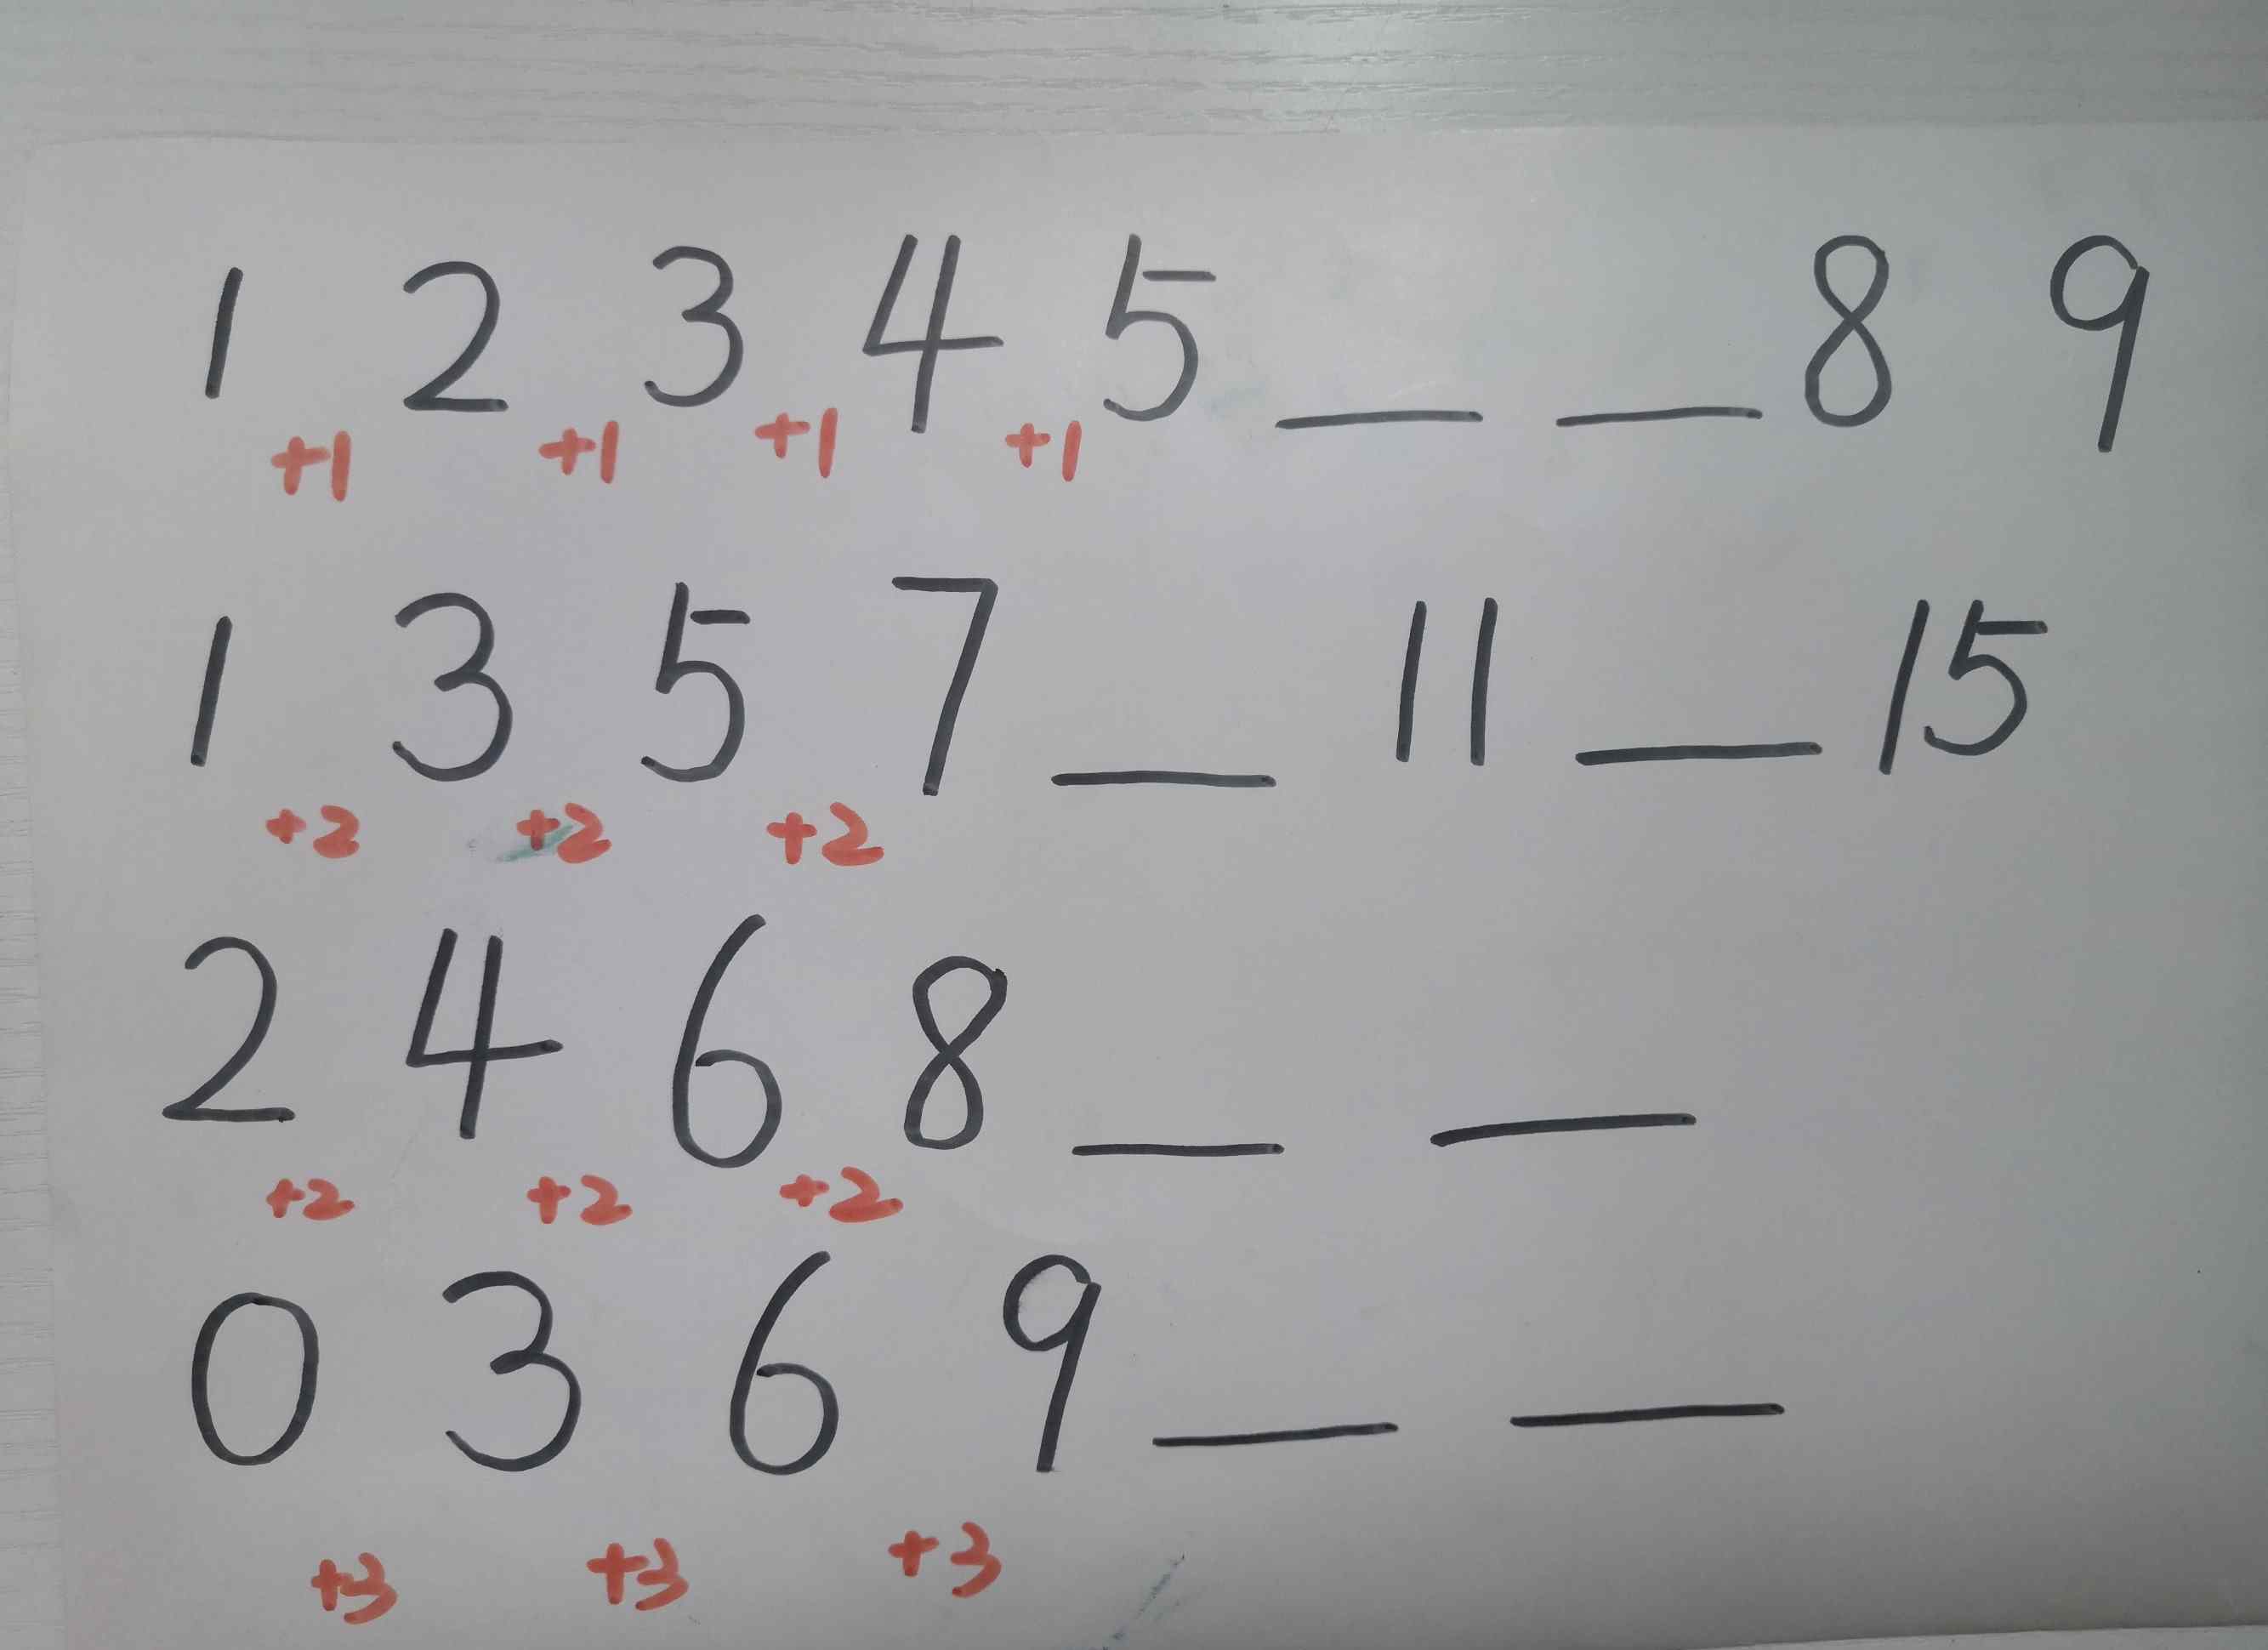 1 2 3 4 5 __ __ 8 9
+1 +1 +1 +1
1 3 5 7 __ 11 __ 15
+2 +2 +2
2 4 6 8 __ __
+2 +2 +2
0 3 6 9 __ __
+3 +3 +3